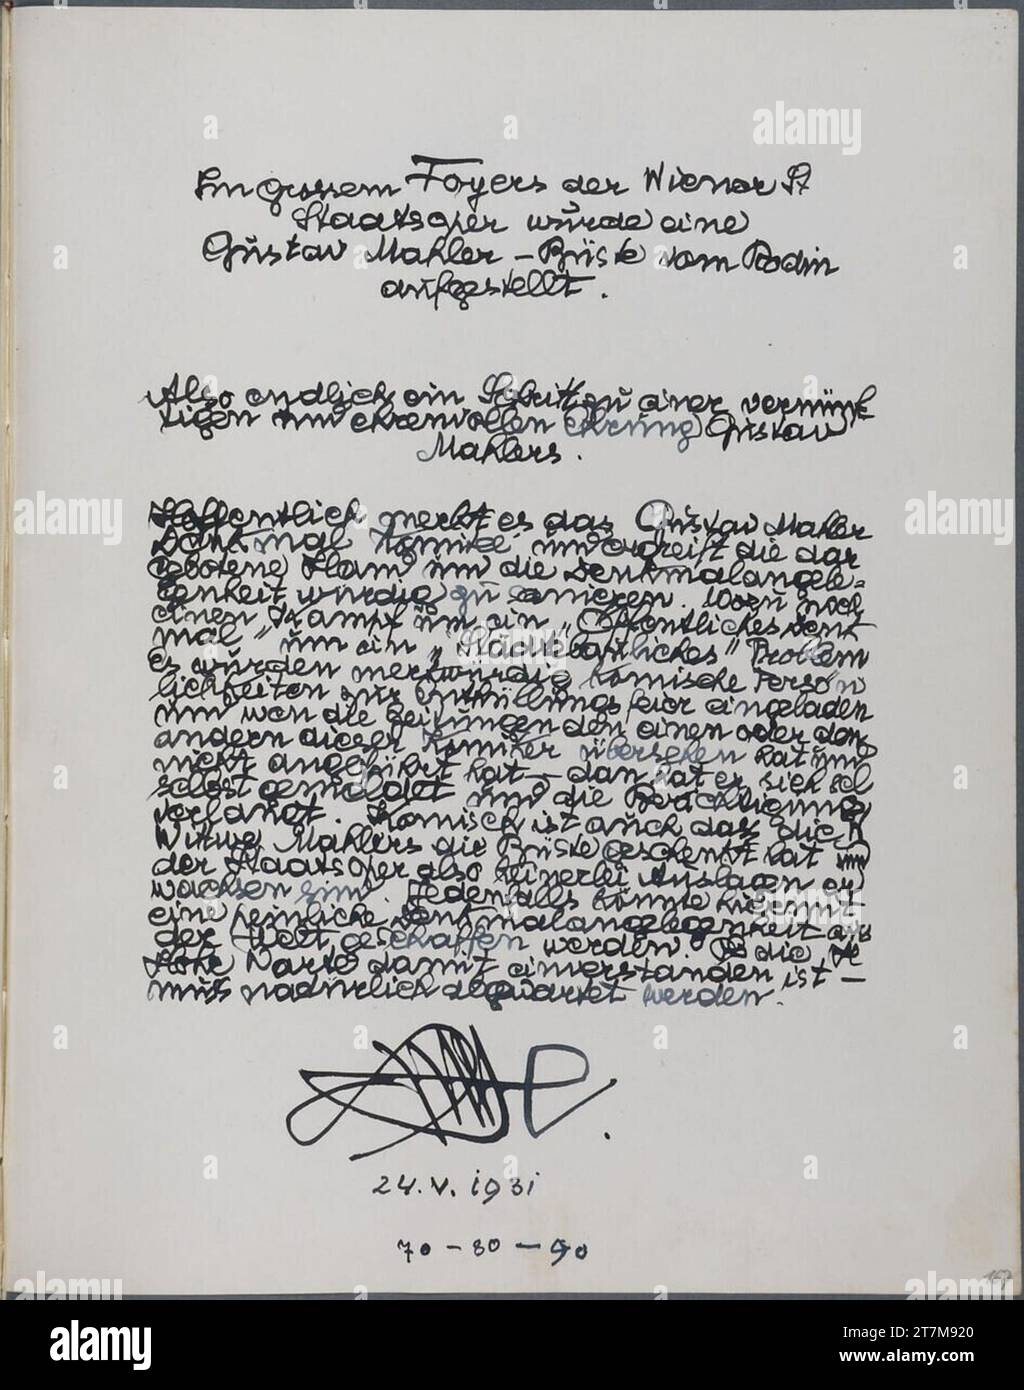 Im grossem Foyers der Wiener St
Staatsoper wurde eine
Gustav Mahler – Büste vom Rodin
aufgestellt .
Also endlich ein Schritt zu einer vernünf
tigen und ehrenvollen Ehrung Gustav
Mahlers .
Hoffentlich merkt es das Gustav Mahler
Denkmal Komitee und ergreift die dar
gebotene Hand um die Denkmalangele-
genheit würdig zu
einen Kampf um ein „Öffentliches Denk
mal" um ein „ " Problem
es wurden merkwürdig komische Persön
lichkeiten zur Enthüllungsfeier eingeladen
und wen die Zeitungen den einen oder den
andern dieser Komiker übersehen hat und
nicht angeführt hat – dan hat er sich sel
selbst gemeldet und die Berichtigung
verlangt . Komisch ist auch das die
Witwe Mahlers die Büste geschenkt hat und
der Staatsoper also keinerlei Auslagen er
wachsen sind . Jedenfalls könnte hiermit
eine peinliche Denkmalangelegenheit aus
der Welt geschaffen werden . Ob die
Hohe Warte damit einverstanden ist –
mus nadürlich abgewartet werden .
24. V. 1931
70 – 80 – 90
157
alamy
Image ID: 2T7M920
www.alamy.com